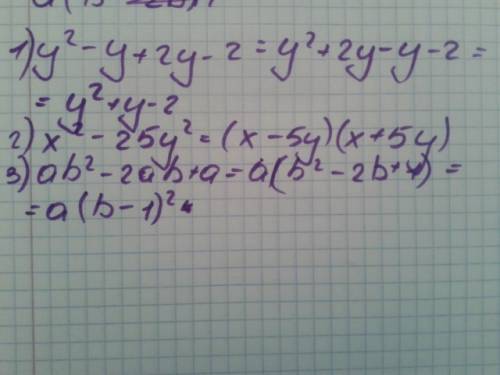 1) y² - y + 2y - 2 = y² + 2y - y - 2 =
= y² + y - 2
2) x² - 25y² = (x - 5y)(x + 5y)
3) ab² - 2ab + a = a(b² - 2b + 1) =
= a(b - 1)²